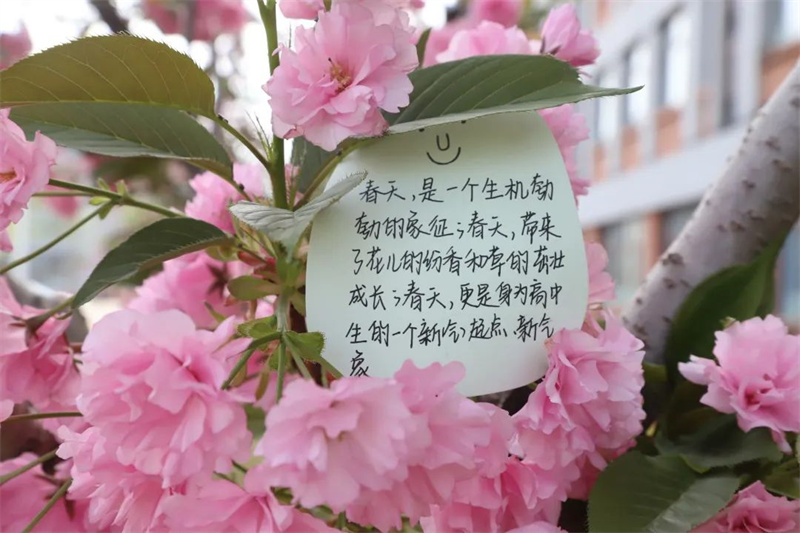 春天,是一个生机勃
勃的象征;春天,带来
了花儿的纷香和草的茁壮
成长;春天,更是身为高中
生的一个新起点、新气
象